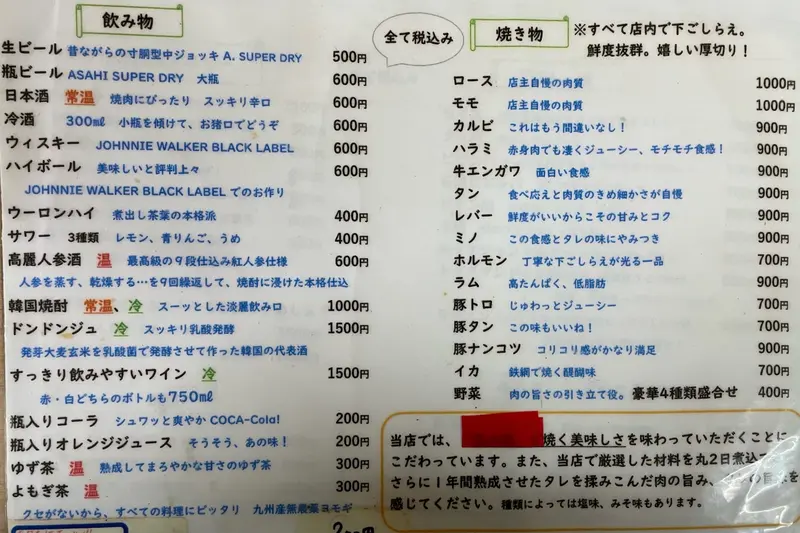 飲み物
生ビール 昔ながらの寸胴型中ジョッキ A. SUPER DRY 500円
瓶ビール ASAHI SUPER DRY 大瓶 600円
日本酒 常温 焼肉にぴったり スッキリ辛口 600円
冷酒 300㎖ 小瓶を傾けて、お猪口でどうぞ 600円
ウィスキー JOHNNIE WALKER BLACK LABEL 600円
ハイボール 美味しいと評判上々 600円
JOHNNIE WALKER BLACK LABEL でのお作り
ウーロンハイ 煮出し茶葉の本格派 400円
サワー 3種類 レモン、青りんご、うめ 400円
高麗人参酒 温 最高級の9段仕込み紅人参仕様 600円
人参を蒸す、乾燥する…を9回繰返して、焼酎に浸けた本格仕込
韓国焼酎 常温、冷 スーッとした淡麗飲み口 1000円
ドンドンジュ 冷 スッキリ乳酸発酵 1500円
発芽大麦玄米を乳酸菌で発酵させて作った韓国の代表酒
すっきり飲みやすいワイン 冷 1500円
赤・白どちらのボトルも750㎖
瓶入りコーラ シュワッと爽やか COCA-Cola! 200円
瓶入りオレンジジュース そうそう、あの味! 200円
ゆず茶 温 熟成してまろやかな甘さのゆず茶 300円
よもぎ茶 温 300円
クセがないから、すべての料理にピッタリ 九州産無農薬ヨモギ
全て税込み
焼き物 ※すべて店内で下ごしらえ。
鮮度抜群。嬉しい厚切り!
ロース 店主自慢の肉質 1000円
モモ 店主自慢の肉質 1000円
カルビ これはもう間違いなし! 900円
ハラミ 赤身肉でも凄くジューシー、モチモチ食感! 900円
牛エンガワ 面白い食感 900円
タン 食べ応えと肉質のきめ細かさが自慢 900円
レバー 鮮度がいいからこその甘みとコク 900円
ミノ この食感とタレの味にやみつき 900円
ホルモン 丁寧な下ごしらえが光る一品 700円
ラム 高たんぱく、低脂肪 900円
豚トロ じゅわっとジューシー 700円
豚タン この味もいいね! 700円
豚ナンコツ コリコリ感がかなり満足 900円
イカ 鉄網で焼く醍醐味 700円
野菜 肉の旨さの引き立て役。豪華4種類盛合せ 400円
当店では、 焼く美味しさを味わっていただくことに
こだわっています。また、当店で厳選した材料を丸2日煮込
さらに1年間熟成させたタレを揉みこんだ肉の旨み、 を
感じてください。種類によっては塩味、みそ味もあります。